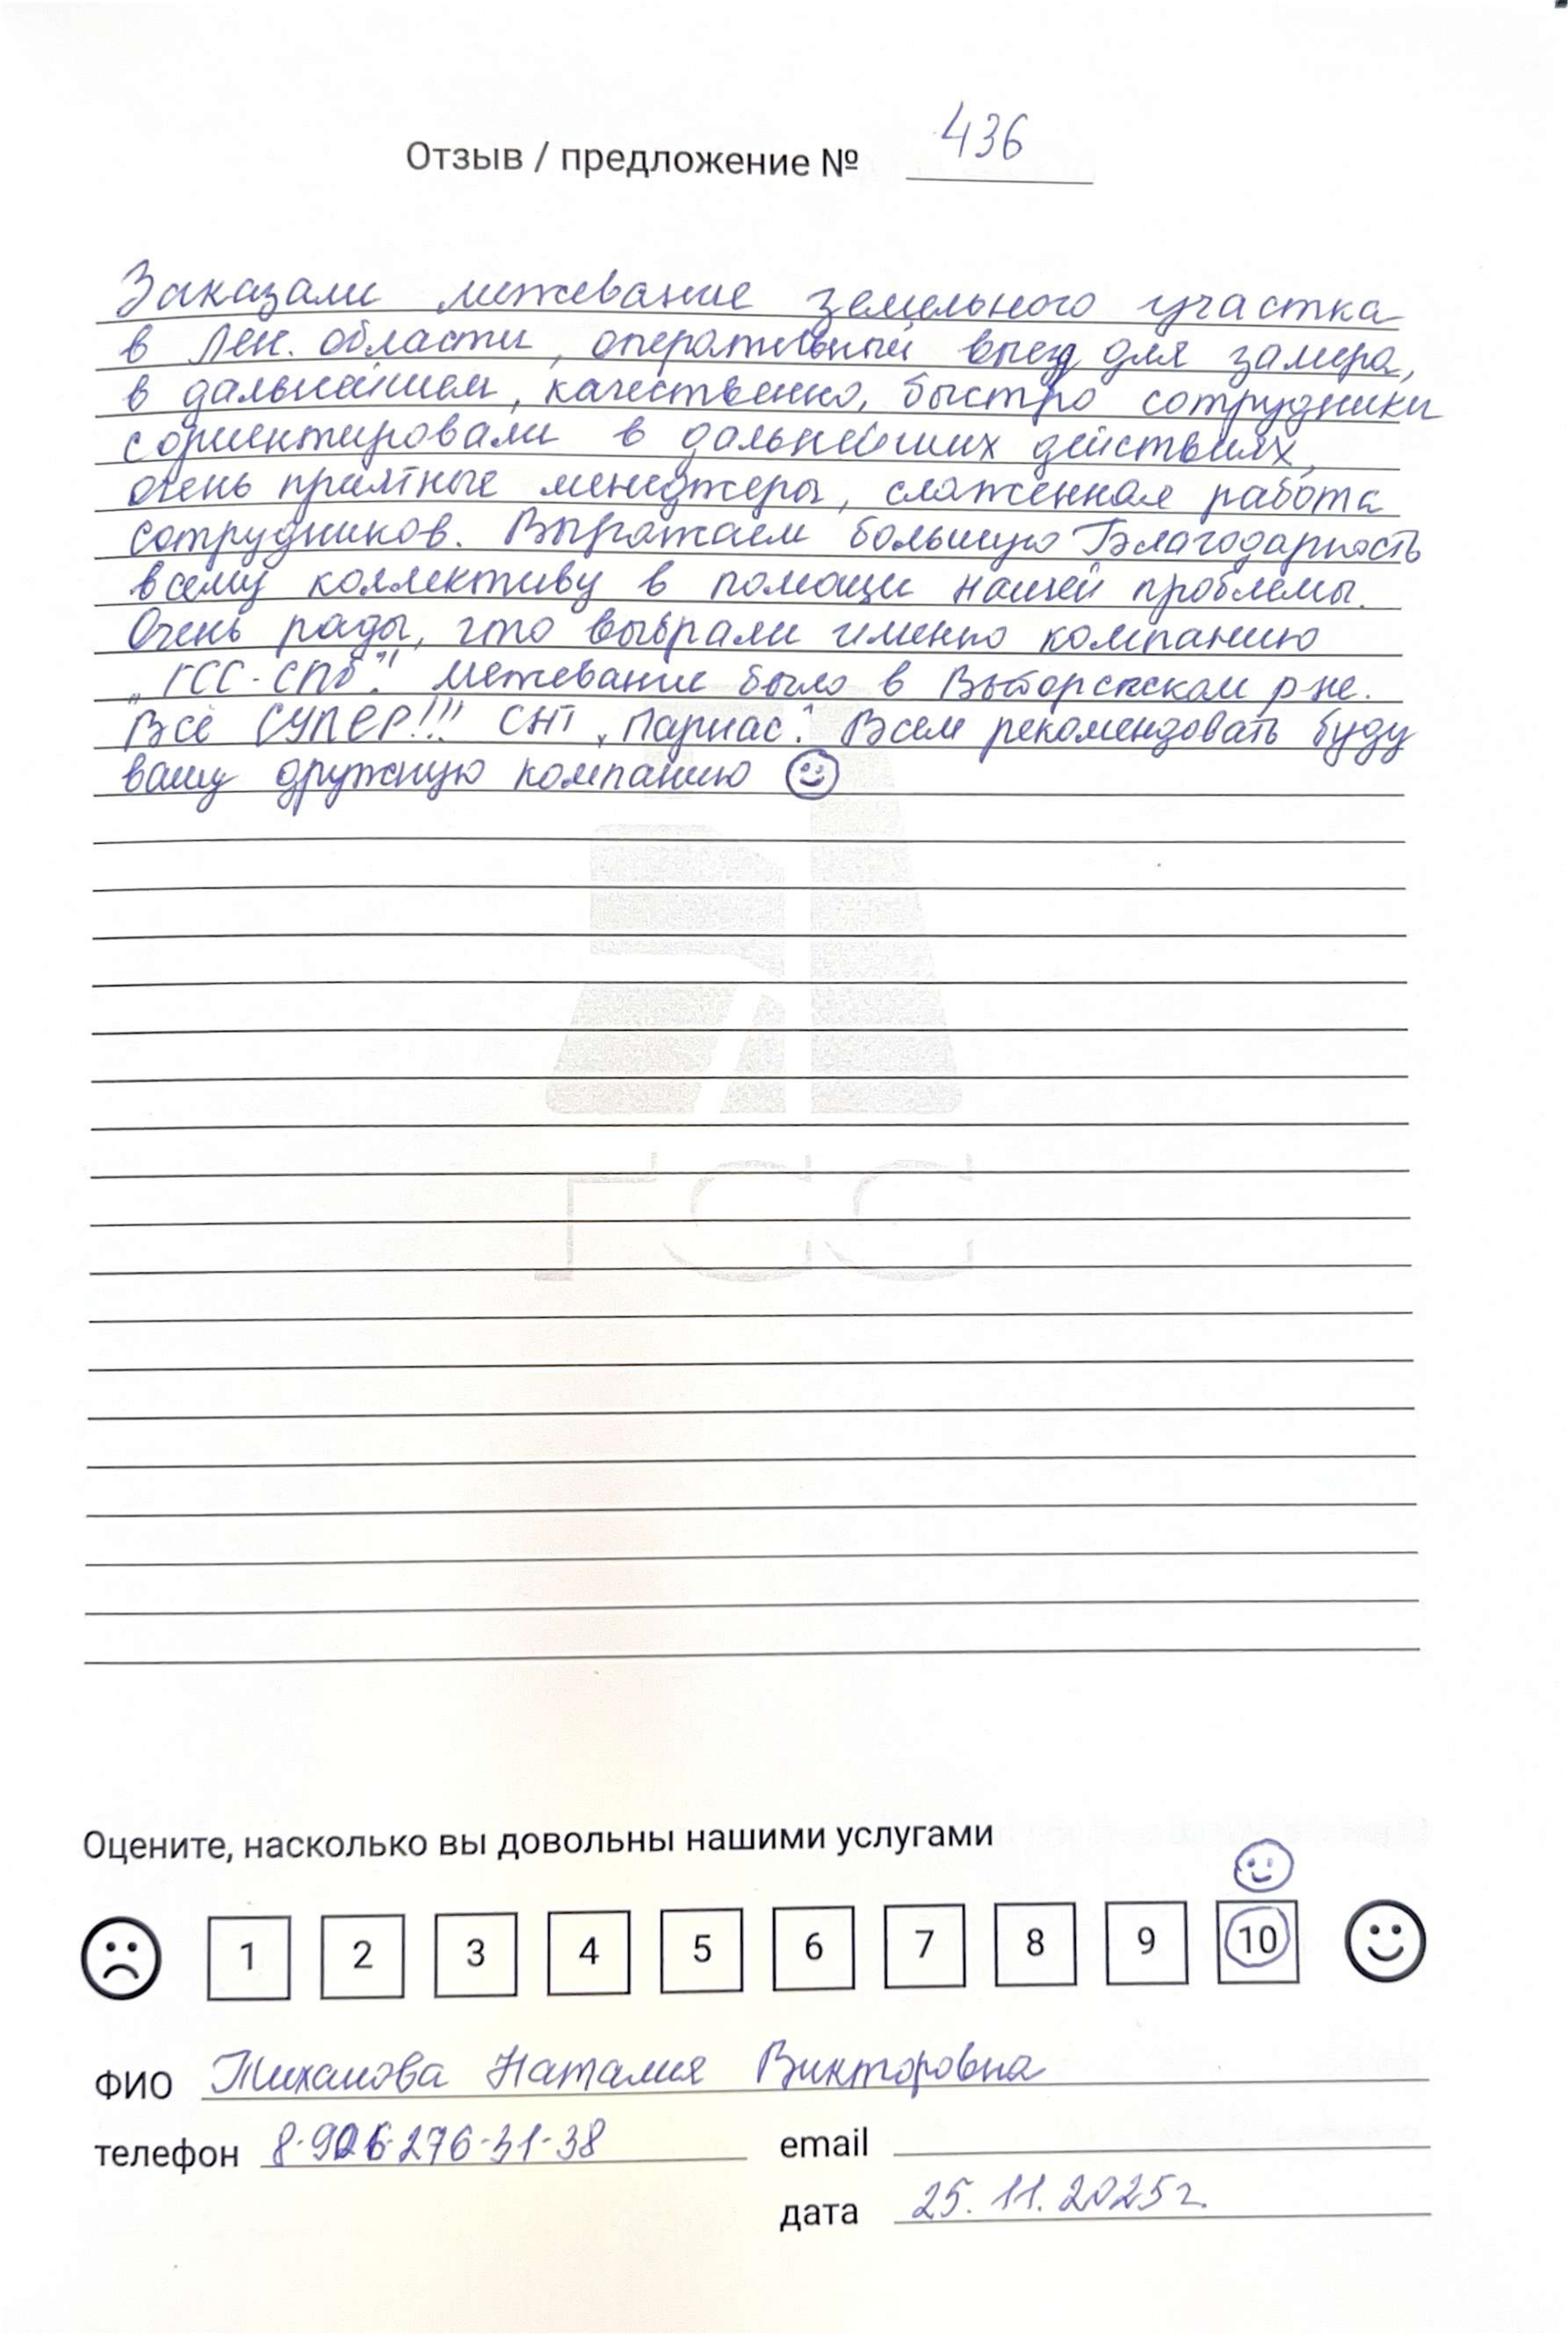 Отзыв / предложение № 436
Заказали межевание земельного участка
в Лен. области, оперативный выезд для замера,
в дальнейшем, качественно, быстро сотрудники
сориентировали в дальнейших действиях,
очень приятные менеджеры, слаженная работа
сотрудников. Выражаем большую Благодарность
всему коллективу в помощи нашей проблемы.
Очень рады, что выбрали именно компанию
„ГСС-СПб". Межевание было в Выборгском р-не.
Всё СУПЕР!!! СНТ „Парнас". Всем рекомендовать буду
вашу дружную компанию
ГСС
Оцените, насколько вы довольны нашими услугами
1 2 3 4 5 6 7 8 9 10
ФИО Тиханова Наталия Викторовна
телефон 8-906-276-31-38 email
дата 25.11.2025г.